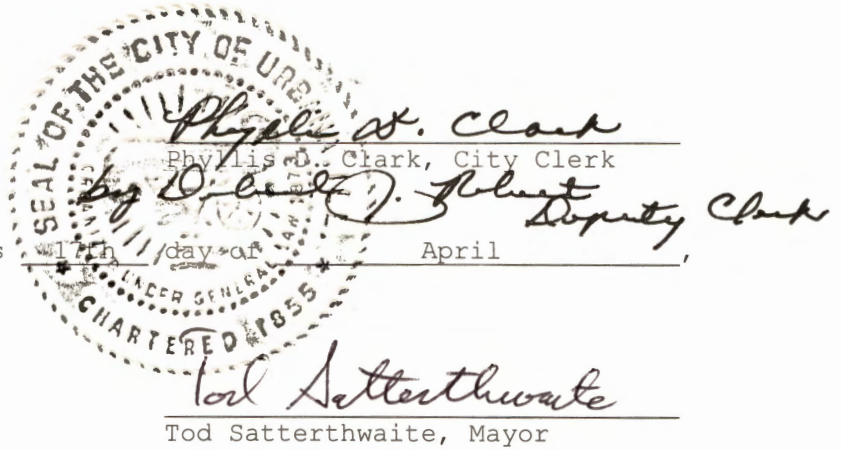 SEAL OF THE CITY OF URBANA
CHARTERED 1855
UNDER GENERAL LAW
Phyllis D. Clark
Phyllis D. Clark, City Clerk
by Debra J. Roberts
Deputy Clerk
17th day of April,
Tod Satterthwaite
Tod Satterthwaite, Mayor